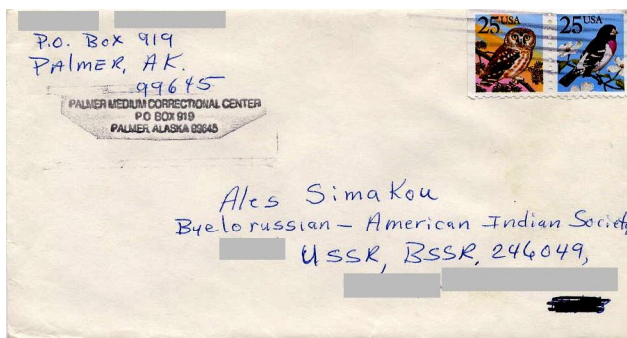 P.O. Box 919
PALMER, AK.
99645
PALMER MEDIUM CORRECTIONAL CENTER
PO BOX 919
PALMER, ALASKA 99645
25 USA
25 USA
Ales Simakou
Byelorussian - American Indian Society
USSR, BSSR, 246049,